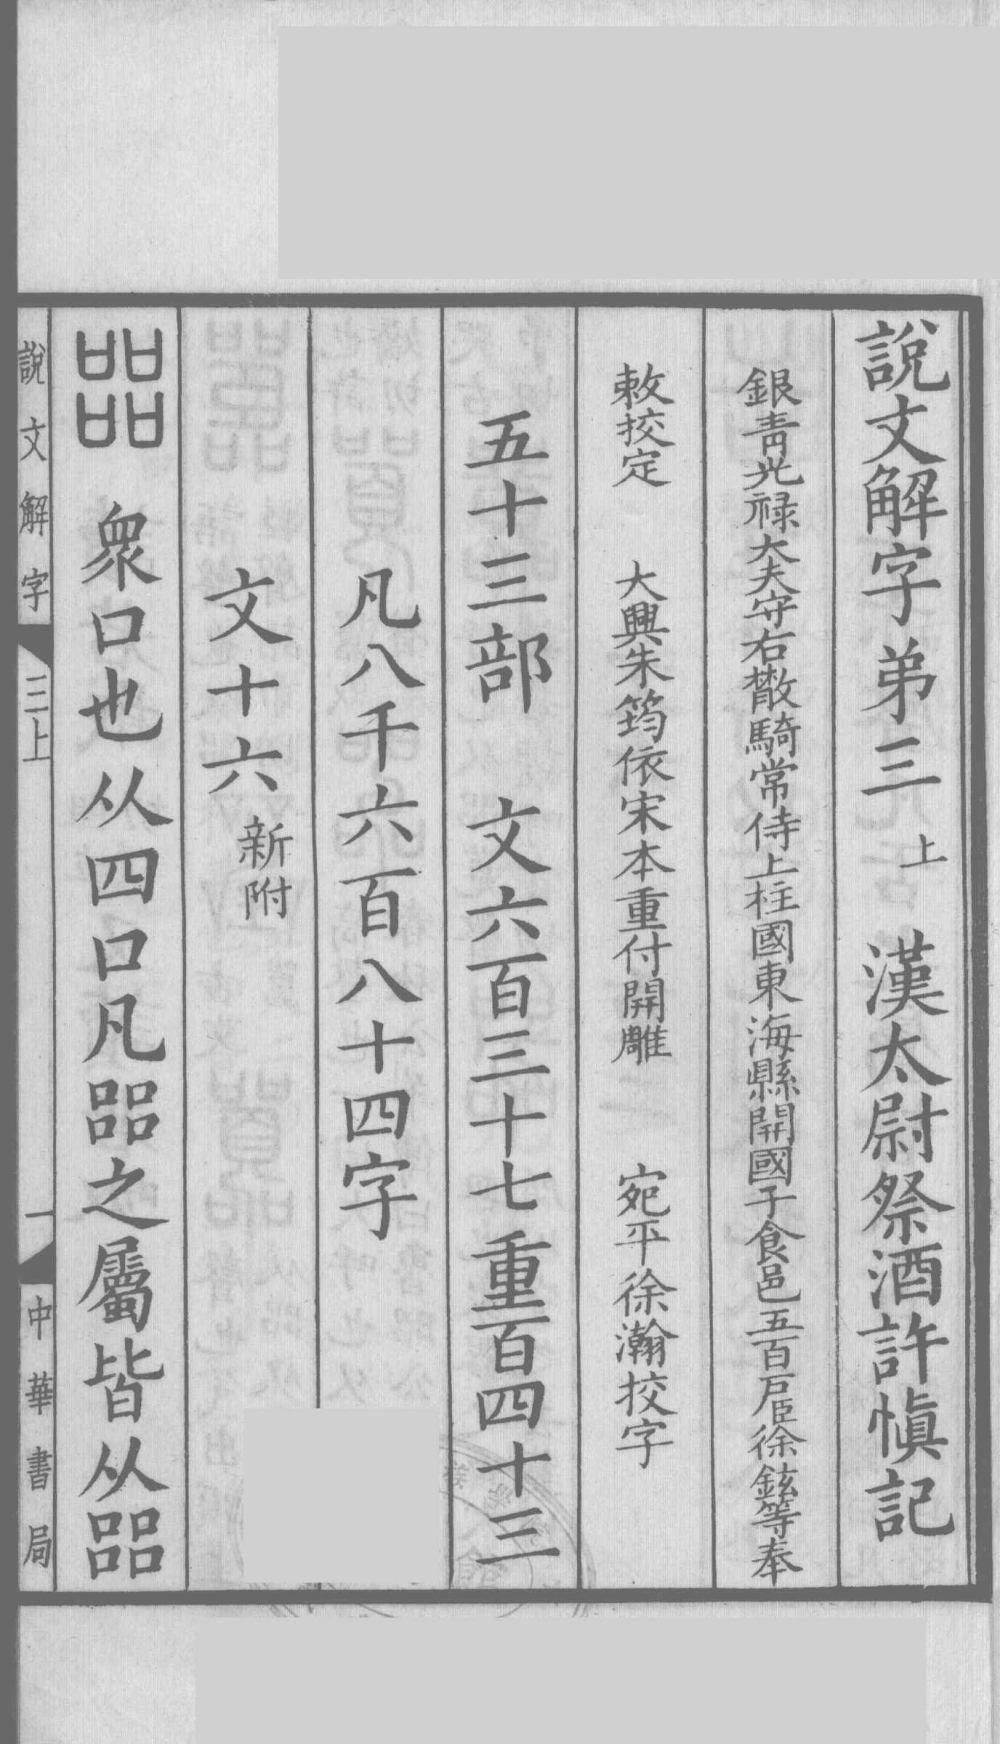 說文解字弟三上 漢太尉祭酒許慎記
銀青光禄大夫守右散騎常侍上柱國東海縣開國子食邑五百戶臣徐鉉等奉
敕挍定 大興朱筠依宋本重付開雕 宛平徐瀚挍字
五十三部 文六百三十七重百四十三
凡八千六百八十四字
文十六新附
㗊 眾口也从四口凡㗊之屬皆从㗊
說文解字 三上 一 中華書局